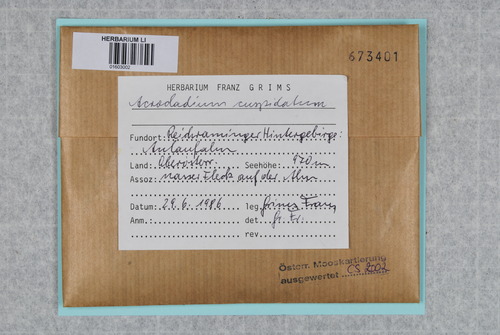 HERBARIUM LI
673401
HERBARIUM FRANZ GRIMS
Acrocladium cuspidatum
Fundort: Reichraminger Hintergebirge:
Anlaufalm
Land: Oberösterr. Seehöhe: 970 m
Assoz: nasser Fleck auf der Alm
Datum: 29.6.1986 leg. Grims Franz
Anm.: det. Gr. Fr.
rev.
Österr. Mooskartierung
ausgewertet CS 2002